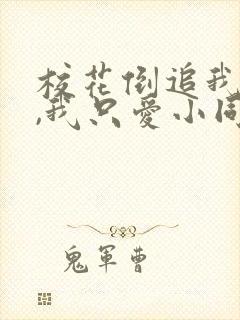 校花倒追我
,我只爱小同
鬼軍曹